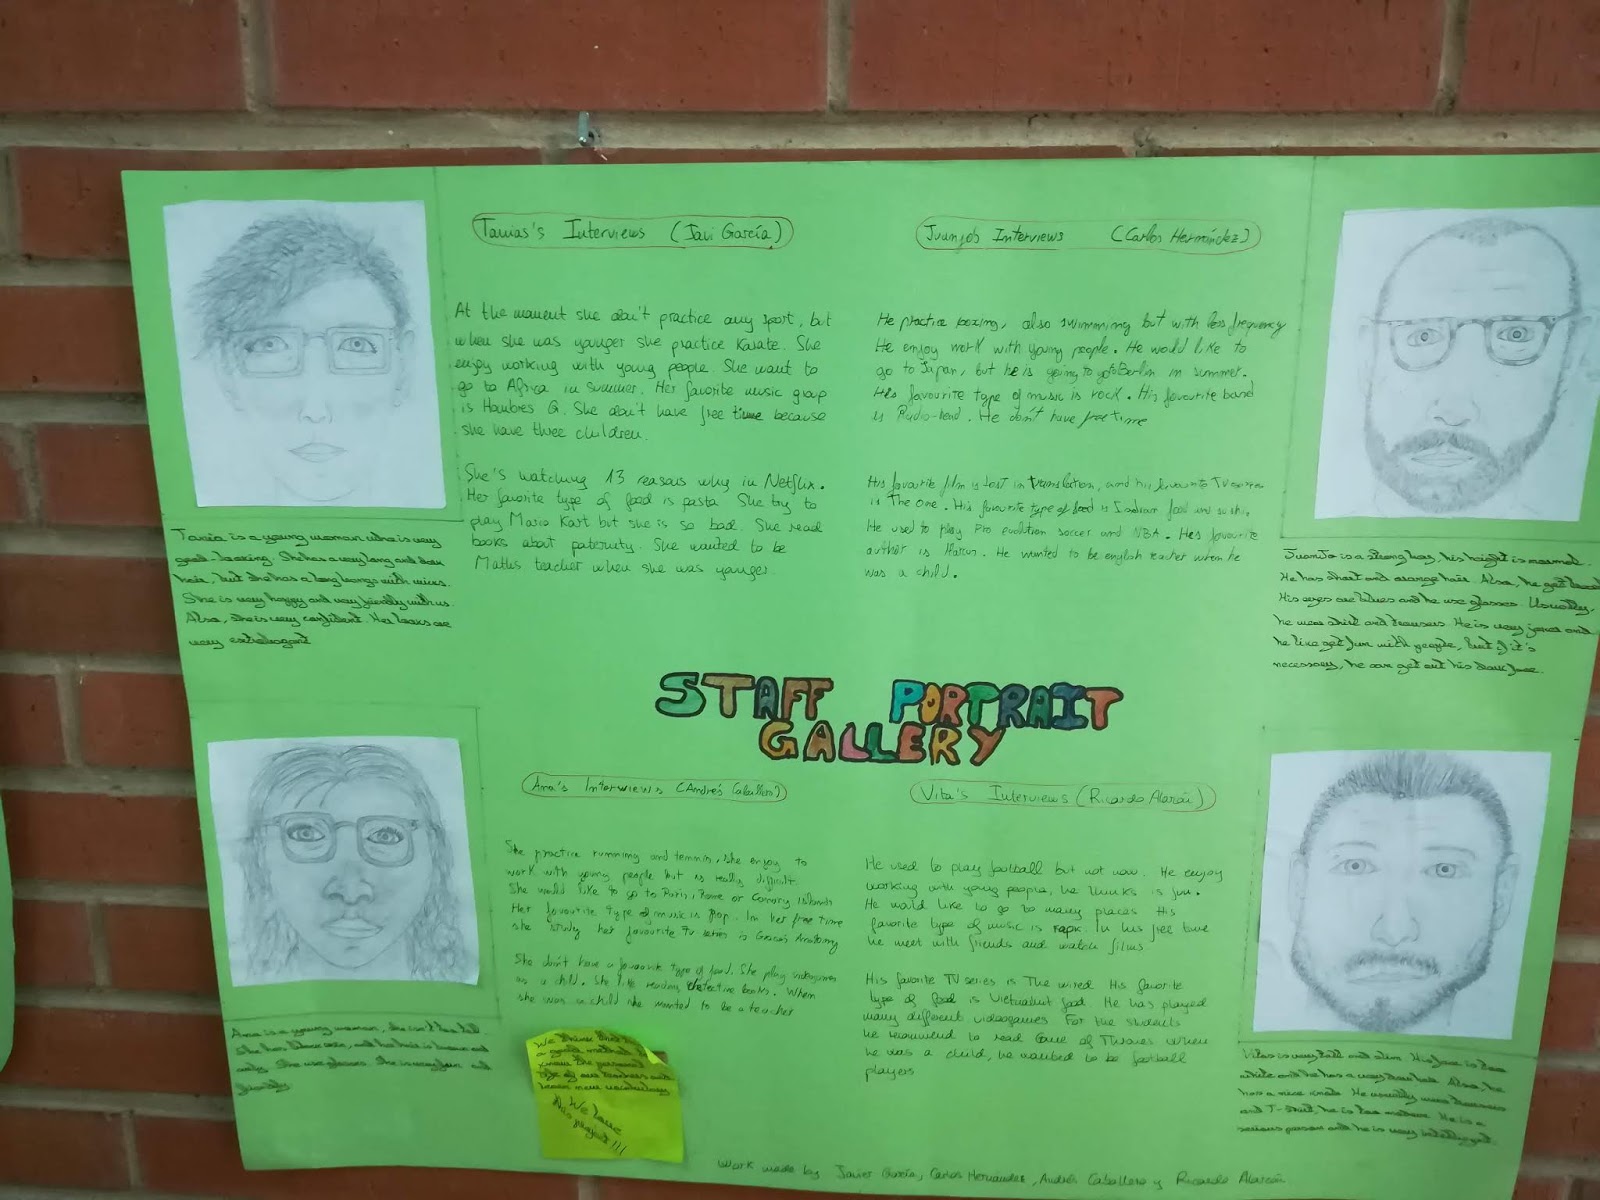 Tanias's Interviews (Javi García)
At the moment she don't practice any sport, but
when she was younger she practice Karate. She
enjoy working with young people. She want to
go to Africa in summer. Her favorite music group
is Hombres G. She don't have free time because
she have three children.
She's watching 13 reasons why in Netflix.
Her favorite type of food is pasta She try to
play Mario Kart but she is so bad. She read
books about paternity. She wanted to be
Maths teacher when she was younger.
Tania is a young woman who is very
good-looking. She has a very long and dark
hair, but she has a long bangs with
She is very happy and very friendly with us.
Also, she is very confident. Her looks are
very extravagant
Juanjo's Interviews (Carlos Hernández)
He practice boxing, also swimming but with less frequency
He enjoy work with young people. He would like to
go to Japan, but he is going to go to Berlin in summer.
His favourite type of music is rock. His favourite band
is Radio-head. He don't have free time
His favourite film is lost in translation, and his favourite TV series
is The One. His favourite type of food is Indian food and sushi.
He used to play Pro evolution soccer and NBA. His favourite
author is . He wanted to be english teacher when he
was a child.
JuanJo is a strong boy, his height is normal.
He has short and orange hair. Also, he get beard
His eyes are blues and he use glasses. Usually,
he wear shirt and trousers. He is very and
he like get fun with people, but if it's
necessary, he can get out his face.
STAFF PORTRAIT
GALLERY
Ana's Interwiews (Andrés Caballero)
She practice running and tennis, she enjoy to
work with young people but is really difficult.
She would like to go to Paris, Rome or Canary Islands
Her favourite type of music is Pop. In her free time
she study her favourite TV series is Anatomy
She don't have a favourite type of food. She play videogames
as a child. She like reading detective books. When
she was a child she wanted to be a teacher
Ana is a young woman, she isn't tall
She has skin, and her hair is brown and
curly. She use glasses. She is very fun and
friendly
We think that
a good method to
know the personal
life of our teachers and
learn more vocabulary
We love
this project!!!
Vita's Interviews (Ricardo Alarcón)
He used to play football but not now. He enjoy
working with young people, he thinks is fun.
He would like to go to many places His
favorite type of music is rap. In his free time
he meet with friends and watch films
His favorite TV series is The wired His favorite
type of food is food. He has played
many different videogames For the students
he recommend to read Game of Thrones When
he was a child, he wanted to be football
players
Vita is very tall and slim. His face is
white and he has a very look. Also, he
has a nice smile. He usually wear trousers
and T-Shirt, he is too modern. He is a
serious person and he is very intelligent.
Work made by Javier García, Carlos Hernández, Andrés Caballero y Ricardo Alarcón